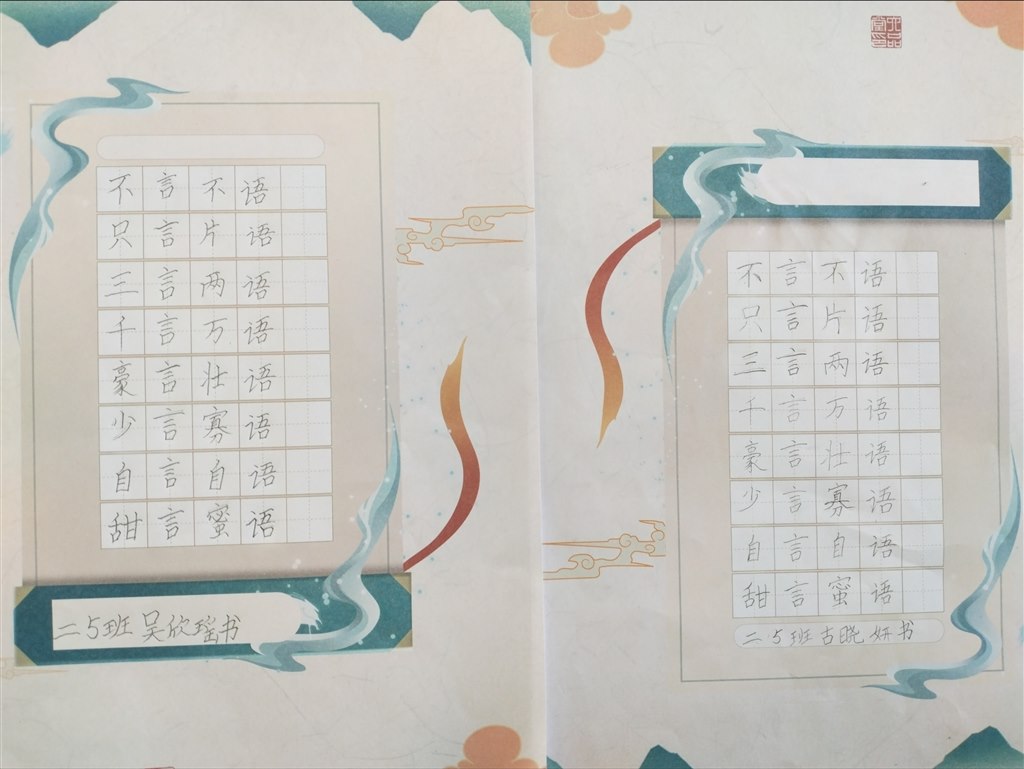 不言不语
只言片语
三言两语
千言万语
豪言壮语
少言寡语
自言自语
甜言蜜语
二5班吴欣瑶书
不言不语
只言片语
三言两语
千言万语
豪言壮语
少言寡语
自言自语
甜言蜜语
二5班古晓妍书